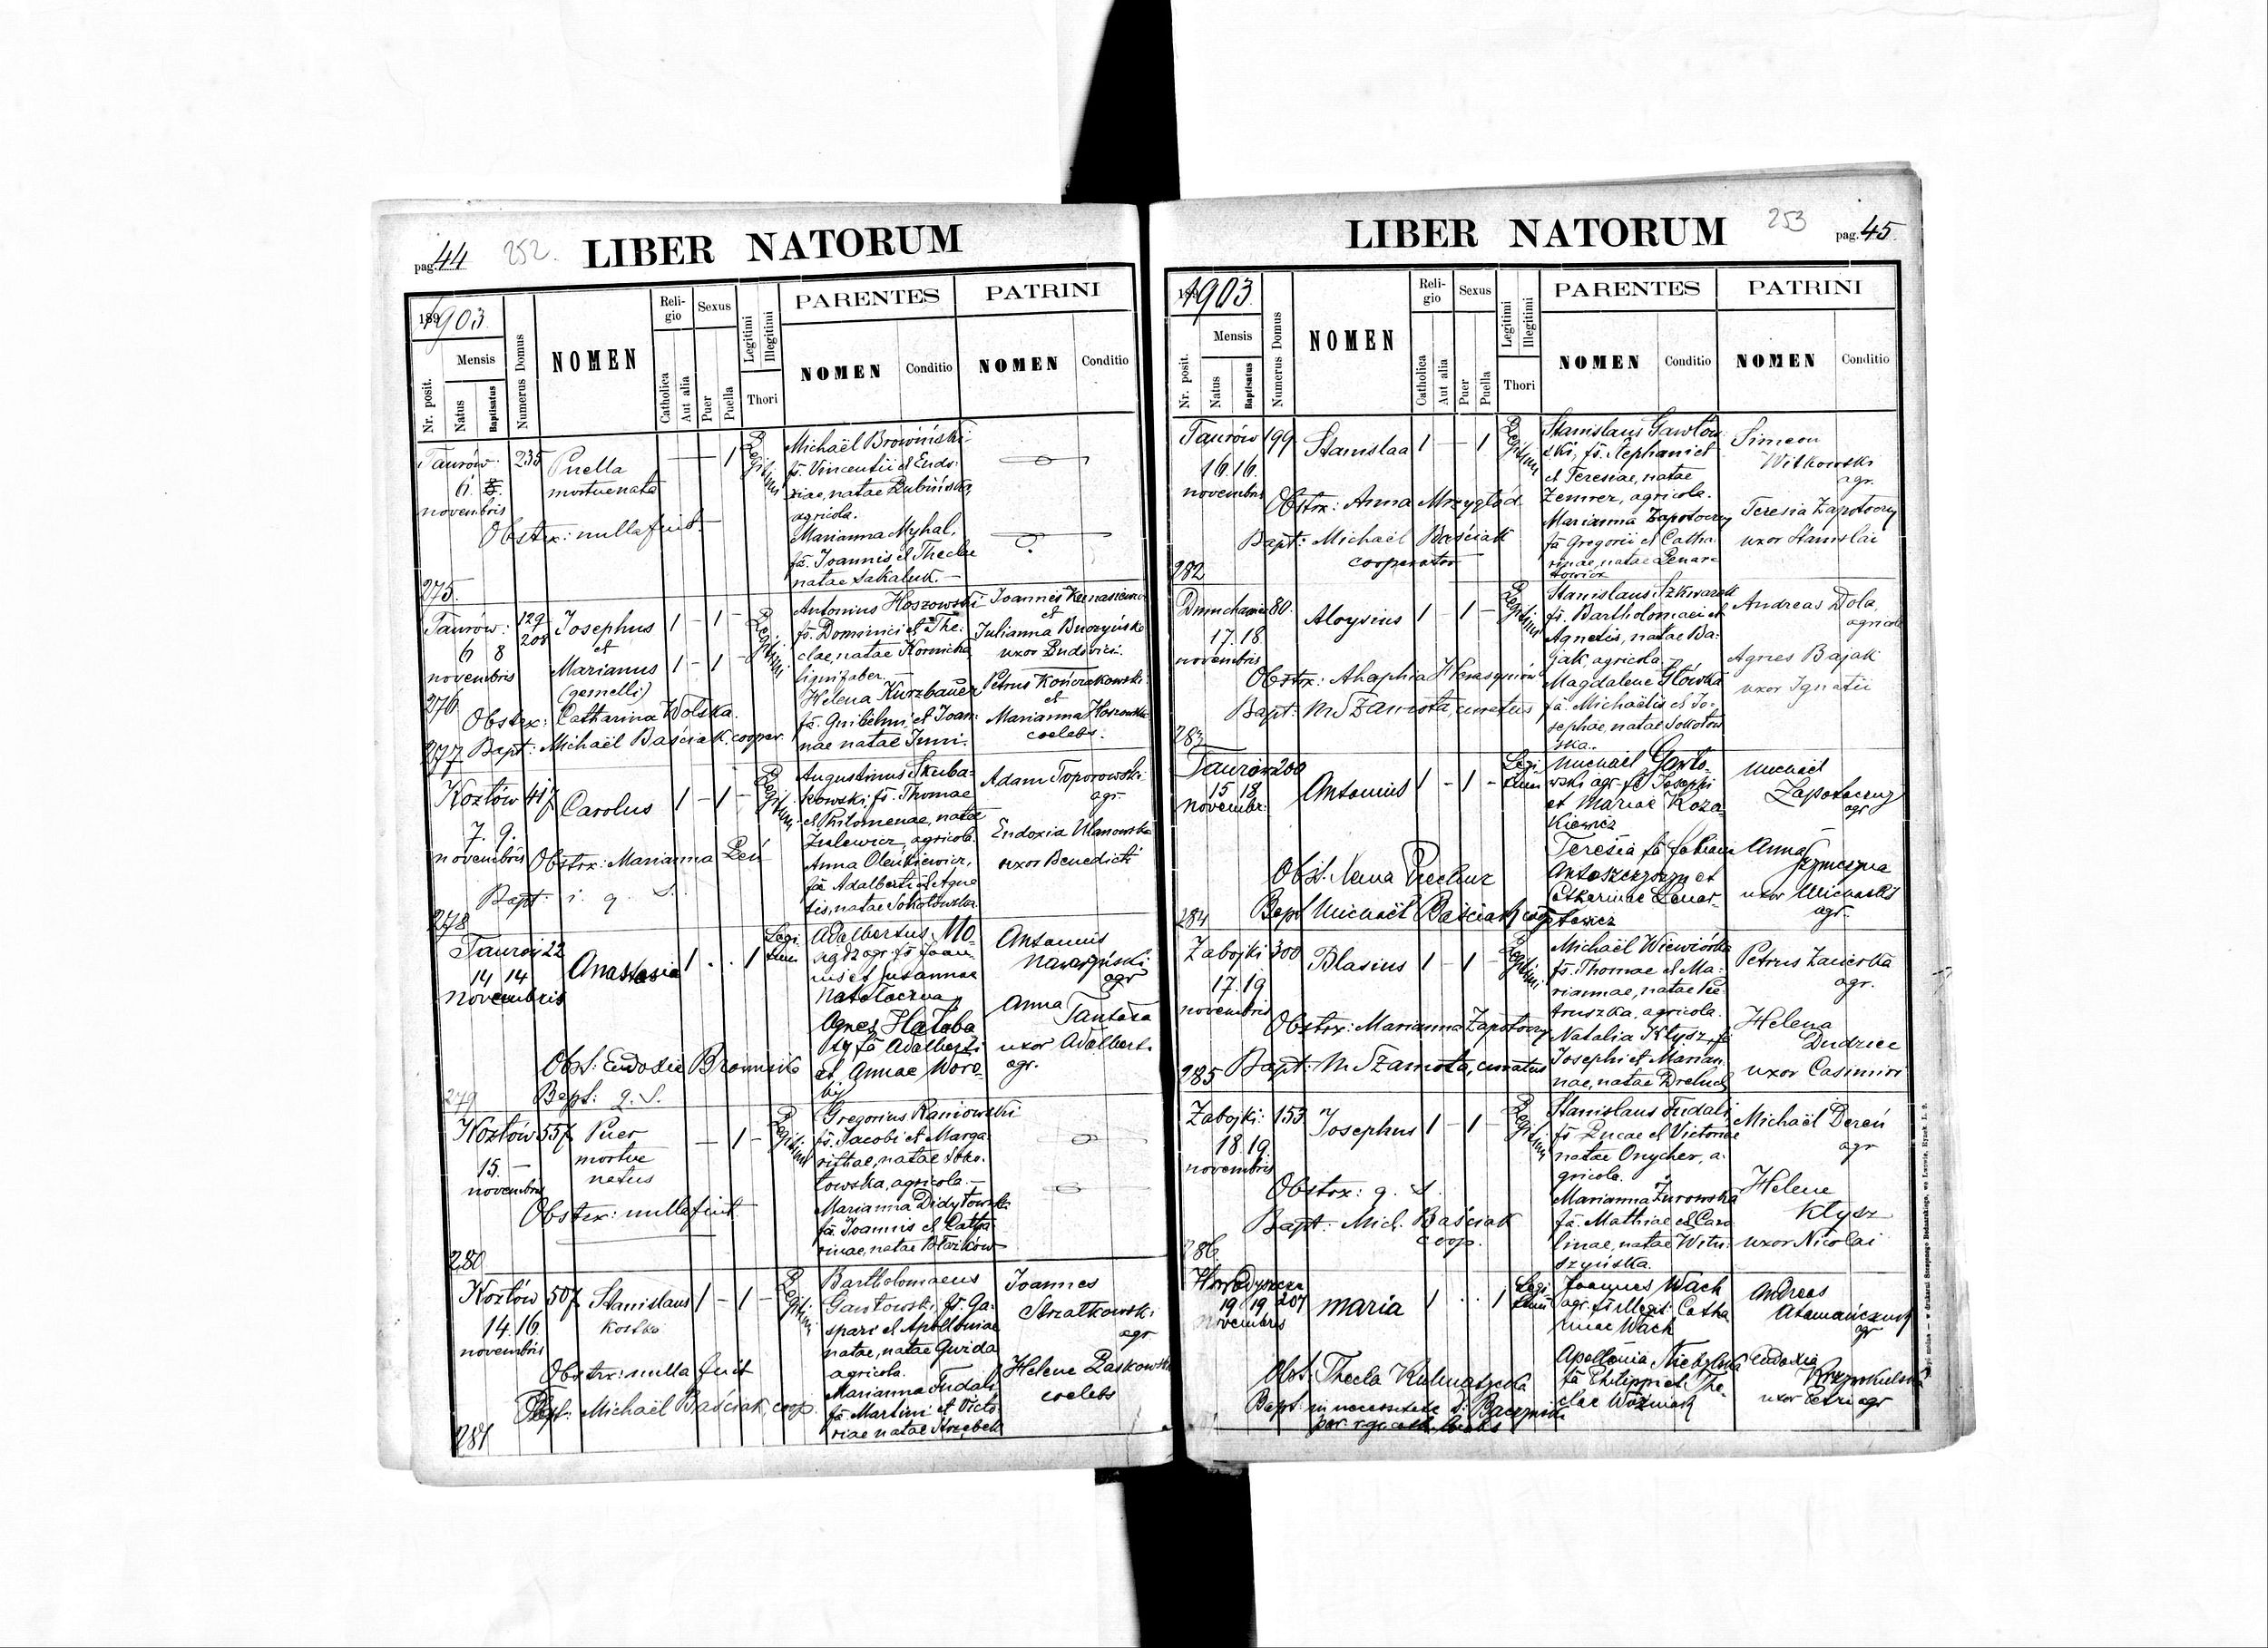 pag. 44
252.
LIBER NATORUM
1903.
Nr. posit.
Mensis
Natus
Baptisatus
Numerus Domus
NOMEN
Reli-
gio
Catholica
Aut alia
Sexus
Puer
Puella
Legitimi
Illegitimi
Thori
PARENTES
NOMEN
Conditio
PATRINI
NOMEN
Conditio
Taurów
6.
novembris
235
Puella
mortuenata
1
Legitimi
Michaël Browiński
fs. Vincentii et Eudo-
xiae, natae Lubińska,
agricola.
Marianna Myhal,
fa. Joannis et Theclae
natae Sakaluk.
Obstrx: nulla fuit
275.
Taurów:
6 8
novembris
129
208
Josephus
et
Marianus
(gemelli)
1 - 1 -
1 - 1 -
Legitimi
Antonius Hoszowski
fs. Dominici et The-
clae, natae Kornicka,
lignifaber.
Helena Kurzbauer
fa. Guilelmi et Joan-
nae natae
Joannes
et
Julianna
uxor Ludovici.
Petrus Kończakowski
et
Marianna Hoszowska
coelebs.
276
Obstrx: Catharina Wolska.
277 Bapt: Michaël Baściak, cooper.
Kozłów
7. 9.
novembris
417
Carolus
1 - 1 -
Legitimi
Augustinus Skuba-
kowski, fs. Thomae
et Philomenae, natae
Zulewicz, agricola.
Anna Oleńkiewicz,
fa Adalberti et Agne
tis, natae Sokołowska.
Adam Toporowski
agr.
Eudoxia Ulanowska
uxor Benedicti
Obstrx: Marianna Leń
Bapt: i. q. S.
278
Taurów
14 14
novembris
22
Anastasia
1 . . 1
Legi
timi
Adalbertus Mo-
agr. fs Joan-
nis et Susannae
Agnes Hałaba
fa Adalberti
et Annae Woro-
bij
Antonius
agr
Anna
Tantała
uxor Adalberti
agr.
Obst: Eudosia
Bapt: q. S.
279
Kozłów
15. -
novembris
557
Puer
mortue
natus
- 1 -
Legitimi
Gregorius Raniowski
fs. Jacobi et Marga
rithae, natae Soko-
łowska, agricola.
Marianna Didyłowska
fa. Joannis et Catha
rinae, natae Błażków
Obstrx: nulla fuit
280
Kozłów
14. 16
novembris
507
Stanislaus
Kostka
1 - 1 -
Legitimi
Bartholomaeus
Gawłowski, fs. Ga-
spari et Apolloniae
natae, natae Gwida
agricola.
Marianna Fudali
fa Martini et Victo
riae natae
Joannes
Strzałkowski
agr
Helena Laskowska
coelebs
Obstrx: nulla fuit
Bapt: Michaël Baściak, coop.
281
LIBER NATORUM
253
pag. 45.
1903.
Nr. posit.
Mensis
Natus
Baptisatus
Numerus Domus
NOMEN
Reli-
gio
Catholica
Aut alia
Sexus
Puer
Puella
Legitimi
Illegitimi
Thori
PARENTES
NOMEN
Conditio
PATRINI
NOMEN
Conditio
Taurów
16. 16.
novembris
199.
Stanislaa
1 - 1
Legitimi
Stanislaus Gawłow
ski, fs. Stephani et
et Teresiae, natae
agricola.
Marianna Zapotoczny
fa Gregorii et Catha-
rinae, natae Lenar-
towicz
Simeon
Witkowski
agr.
Teresia Zapotoczny
uxor Stanislai
Obstrx: Anna Mrzygłód.
Bapt: Michaël Baściak
cooperator
282
17. 18.
novembris
80.
Aloysius
1 - 1 -
Legitimi
Stanislaus Szkwarek
fs. Bartholomaei et
Agnetis, natae Ba-
jak, agricola.
Magdalena Główka
fa. Michaëlis et Jo-
sephae, natae Sokołow
ska.
Andreas Dola,
agricola
Agnes Bajak
uxor Ignatii
Obstrx: Ahaphia
Bapt: M. Szamota, curatus
283
Taurów
15 18
Novembr.
200
Antonius
1 - 1 -
Legi
timi
Michaël Gawło-
wski agr. fs Josephi
et Mariae Koza
kiewicz
Teresia fa Fabiani
Antoszczyszyn et
Lenar-
towicz
Michaël
Zapotoczny
agr
Anna
uxor Michaelis
agr.
Obst.
Bapt Michaël Baściak coop
284
Zabojki
17. 19
novembris
300
Blasius
1 - 1 -
Legitimi
Michaël Wiewiórka
fs. Thomae et Ma-
riannae, natae Pie-
truszka, agricola.
Natalia Kłysz, fa
Josephi et Marian
nae, natae
Petrus
agr.
Helena
Dudziec
uxor Casimiri
Obstrx: Marianna Zapotoczny
285 Bapt: M. Szamota, curatus
Zabojki:
18. 19.
novembris
153
Josephus
1 - 1 -
Legitimi
Stanislaus Fudali,
fs Lucae et Victoriae
natae Onycher, a-
gricola.
Marianna Żurowska
fa. Mathiae et Caro
linae, natae Witu-
szyńska.
Michaël Dereń
agr
Helena
Kłysz
uxor Nicolai
Obstrx: q. S.
Bapt: Mich. Baściak
coop.
286
19 19
Novembris
207
Maria
1 . . 1
Legi
timi
Joannes Wach
agr. fs illegit. Catha
rinae Wach
Apollonia
fa Philippi et The-
clae Woźniak
Andreas
Atamańczuk
agr
Eudoxia
uxor Petri agr
Obst: Thecla
Bapt: in necessitate